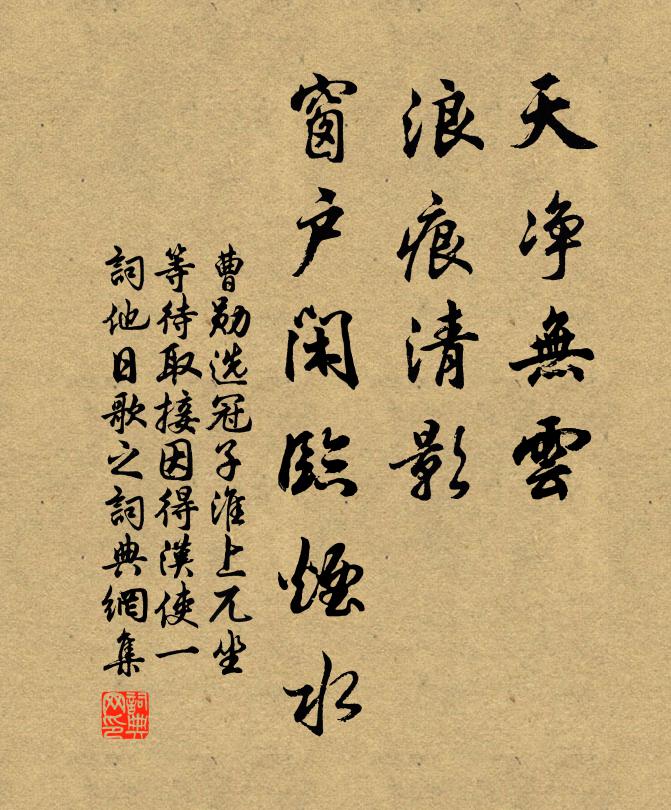 天净無雲
浪痕清影
窗户閑臨煙水
曹勛选冠子淮上兀坐
等待取接因得漢使一
詞他日歌之詞典網集
詞典
网印